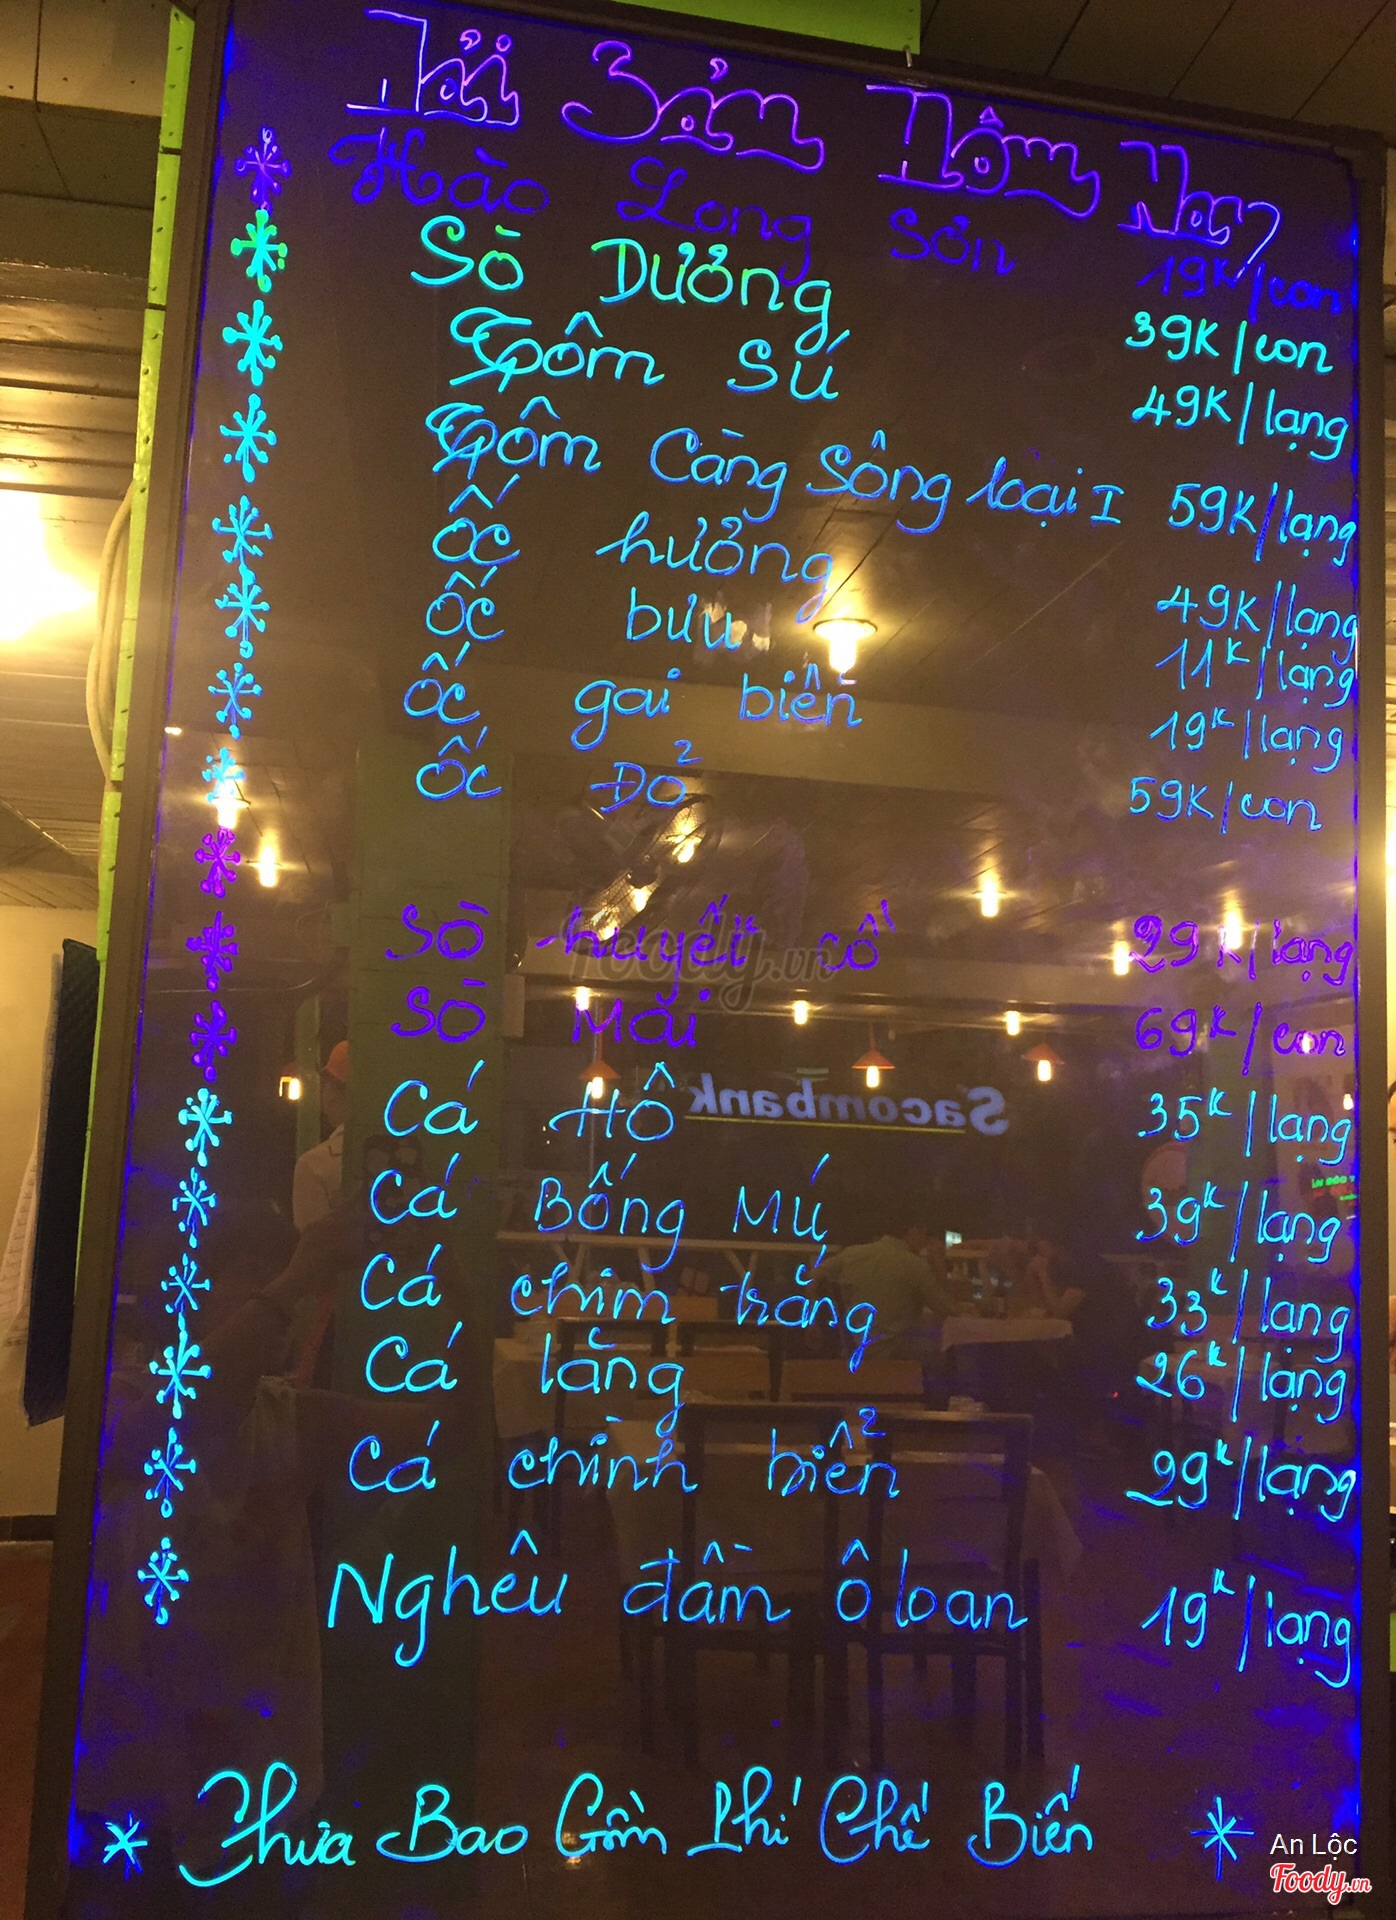 Hải Sản Hôm Nay
Hào Long Sơn 19K/con
Sò Dương 39K/con
Tôm Sú 49K/lạng
Tôm Càng Sông loại I 59K/lạng
Ốc hương 49K/lạng
Ốc bưu 11K/lạng
Ốc gai biển 19K/lạng
Ốc Đỏ 59K/con
Sò huyết cồ 29K/lạng
Sò Mai 69K/con
Cá Hô 35K/lạng
Cá Bống Mú 39K/lạng
Cá chim trắng 33K/lạng
Cá lăng 26K/lạng
Cá chình biển 29K/lạng
Nghêu đầm ô loan 19K/lạng
* Chưa Bao Gồm Phí Chế Biến *
Sacombank
Foody.vn
An Lộc
Foody.vn